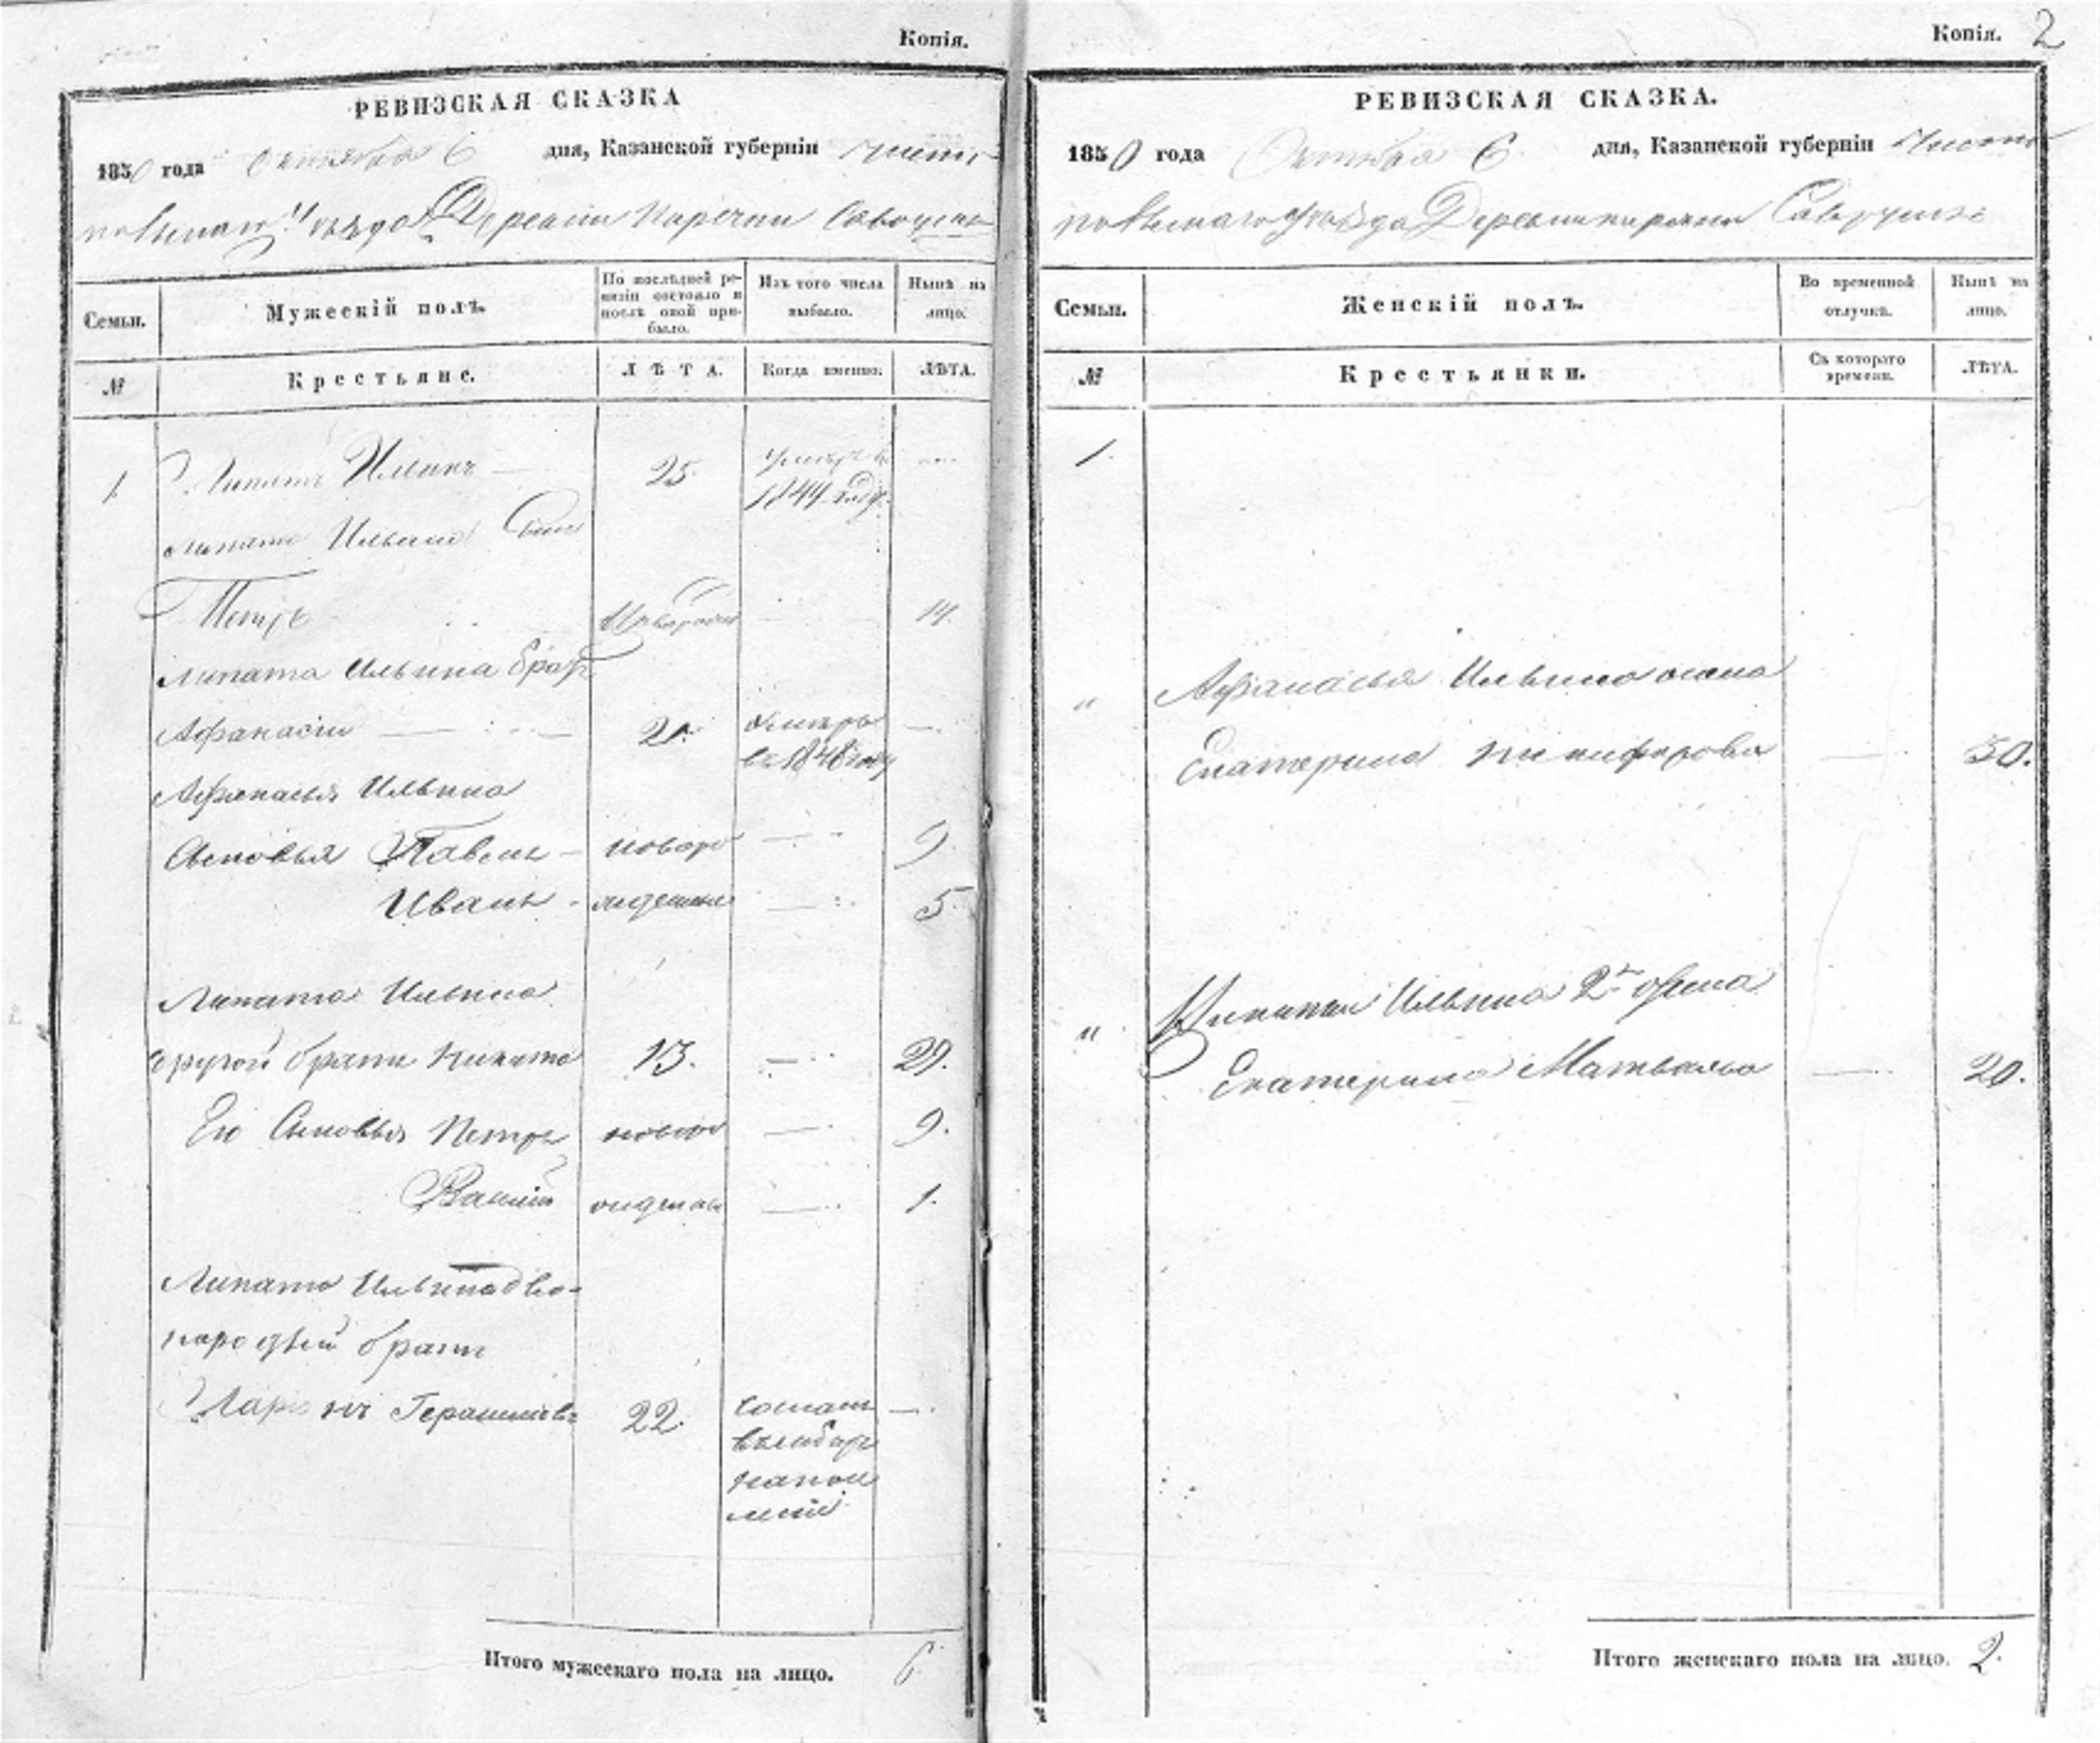 Копія.
РЕВИЗСКАЯ СКАЗКА
1850 года Октября 6 дня, Казанской губерніи Чисто
польскаго уѣзда Деревни
Семьи.
Мужескій полъ.
По послѣдней ре-
визіи состояло и
послѣ оной при-
было.
Изъ того числа
выбыло.
Нынѣ на
лицо.
№
Крестьяне.
ЛѢТА.
Когда именно.
ЛѢТА.
1. Липатъ Ильинъ 25. умеръ въ
1844 году.
Липата Ильина сынъ
Петръ 14.
Липата Ильина братъ
Афанасій умеръ —
въ 1848 году
Афанасья Ильина
Сыновья Павелъ — новоро — 9
Иванъ - жденные — 5
Липата Ильина
другой братъ 13. — 29.
Его Сыновья Петръ новор — 9.
ожденные — 1.
Липата Ильина дво-
народный братъ
Ларіонъ 22. —.
Итого мужескаго пола на лицо. 6
Копія. 2
РЕВИЗСКАЯ СКАЗКА.
1850 года Октября 6 дня, Казанской губерніи Чисто
польскаго уѣзда Деревни
Семьи.
Женскій полъ.
Во временной
отлучкѣ.
Нынѣ на
лицо.
№
Крестьянки.
Съ котораго
времени.
ЛѢТА.
1.
" Афанасья Ильина жена
Екатерина Никифорова — 30.
" Ильина 2я жена
Екатерина — 20.
Итого женскаго пола на лицо. 2.